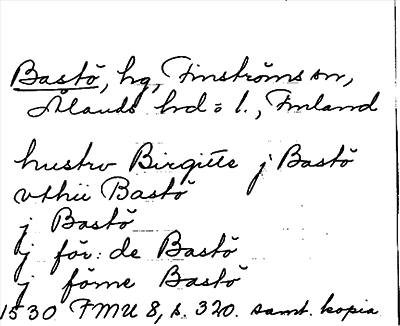 Bastö, hg, Finströms sn,
Ålands hd = l., Finland
hustrv Birgitte j Bastö
vthii Bastö
j Bastö
j för: de Bastö
j förne Bastö
1530 FMU 8, s. 320. samt. kopia